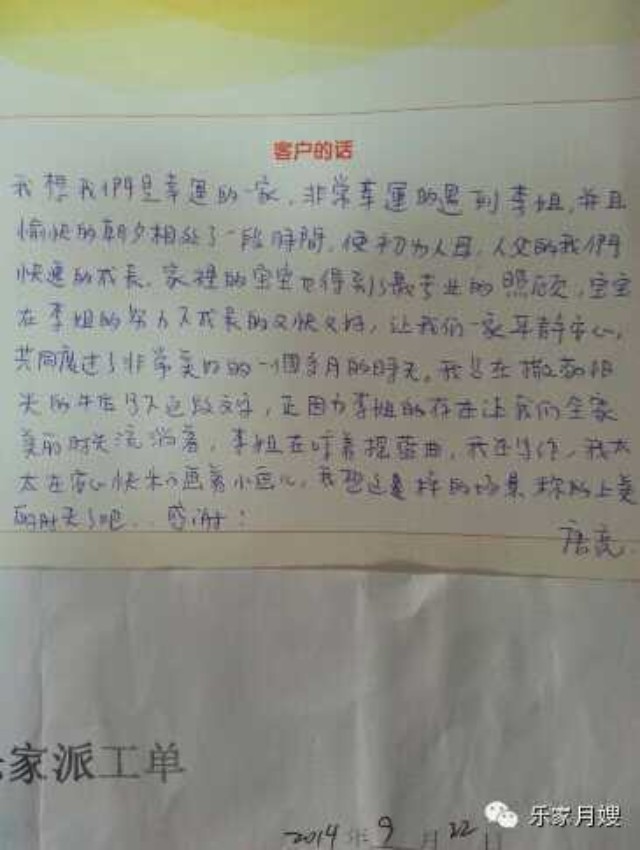 客户的话
我想我們是幸運的一家，非常幸運的遇到李姐，并且
愉快的朝夕相处了一段時間，使初为人母、人父的我們
快速的成長，家裡的宝宝也得到了最专业的照顾，宝宝
在李姐的努力下成長的又快又好，让我们一家耳静心，
共同度过了非常美好的一個多月的時光。我坐在撒满阳
光的午后写下这段文字，正因为李姐的存在让我们全家
美丽时光流淌着，李姐在哼着摇篮曲，我在写作，我太
太在安心快乐的画着小画儿，我想这是样的场景称的上美
的时光了吧...感谢！
唐亮
家派工单
2014年9月22日
乐家月嫂